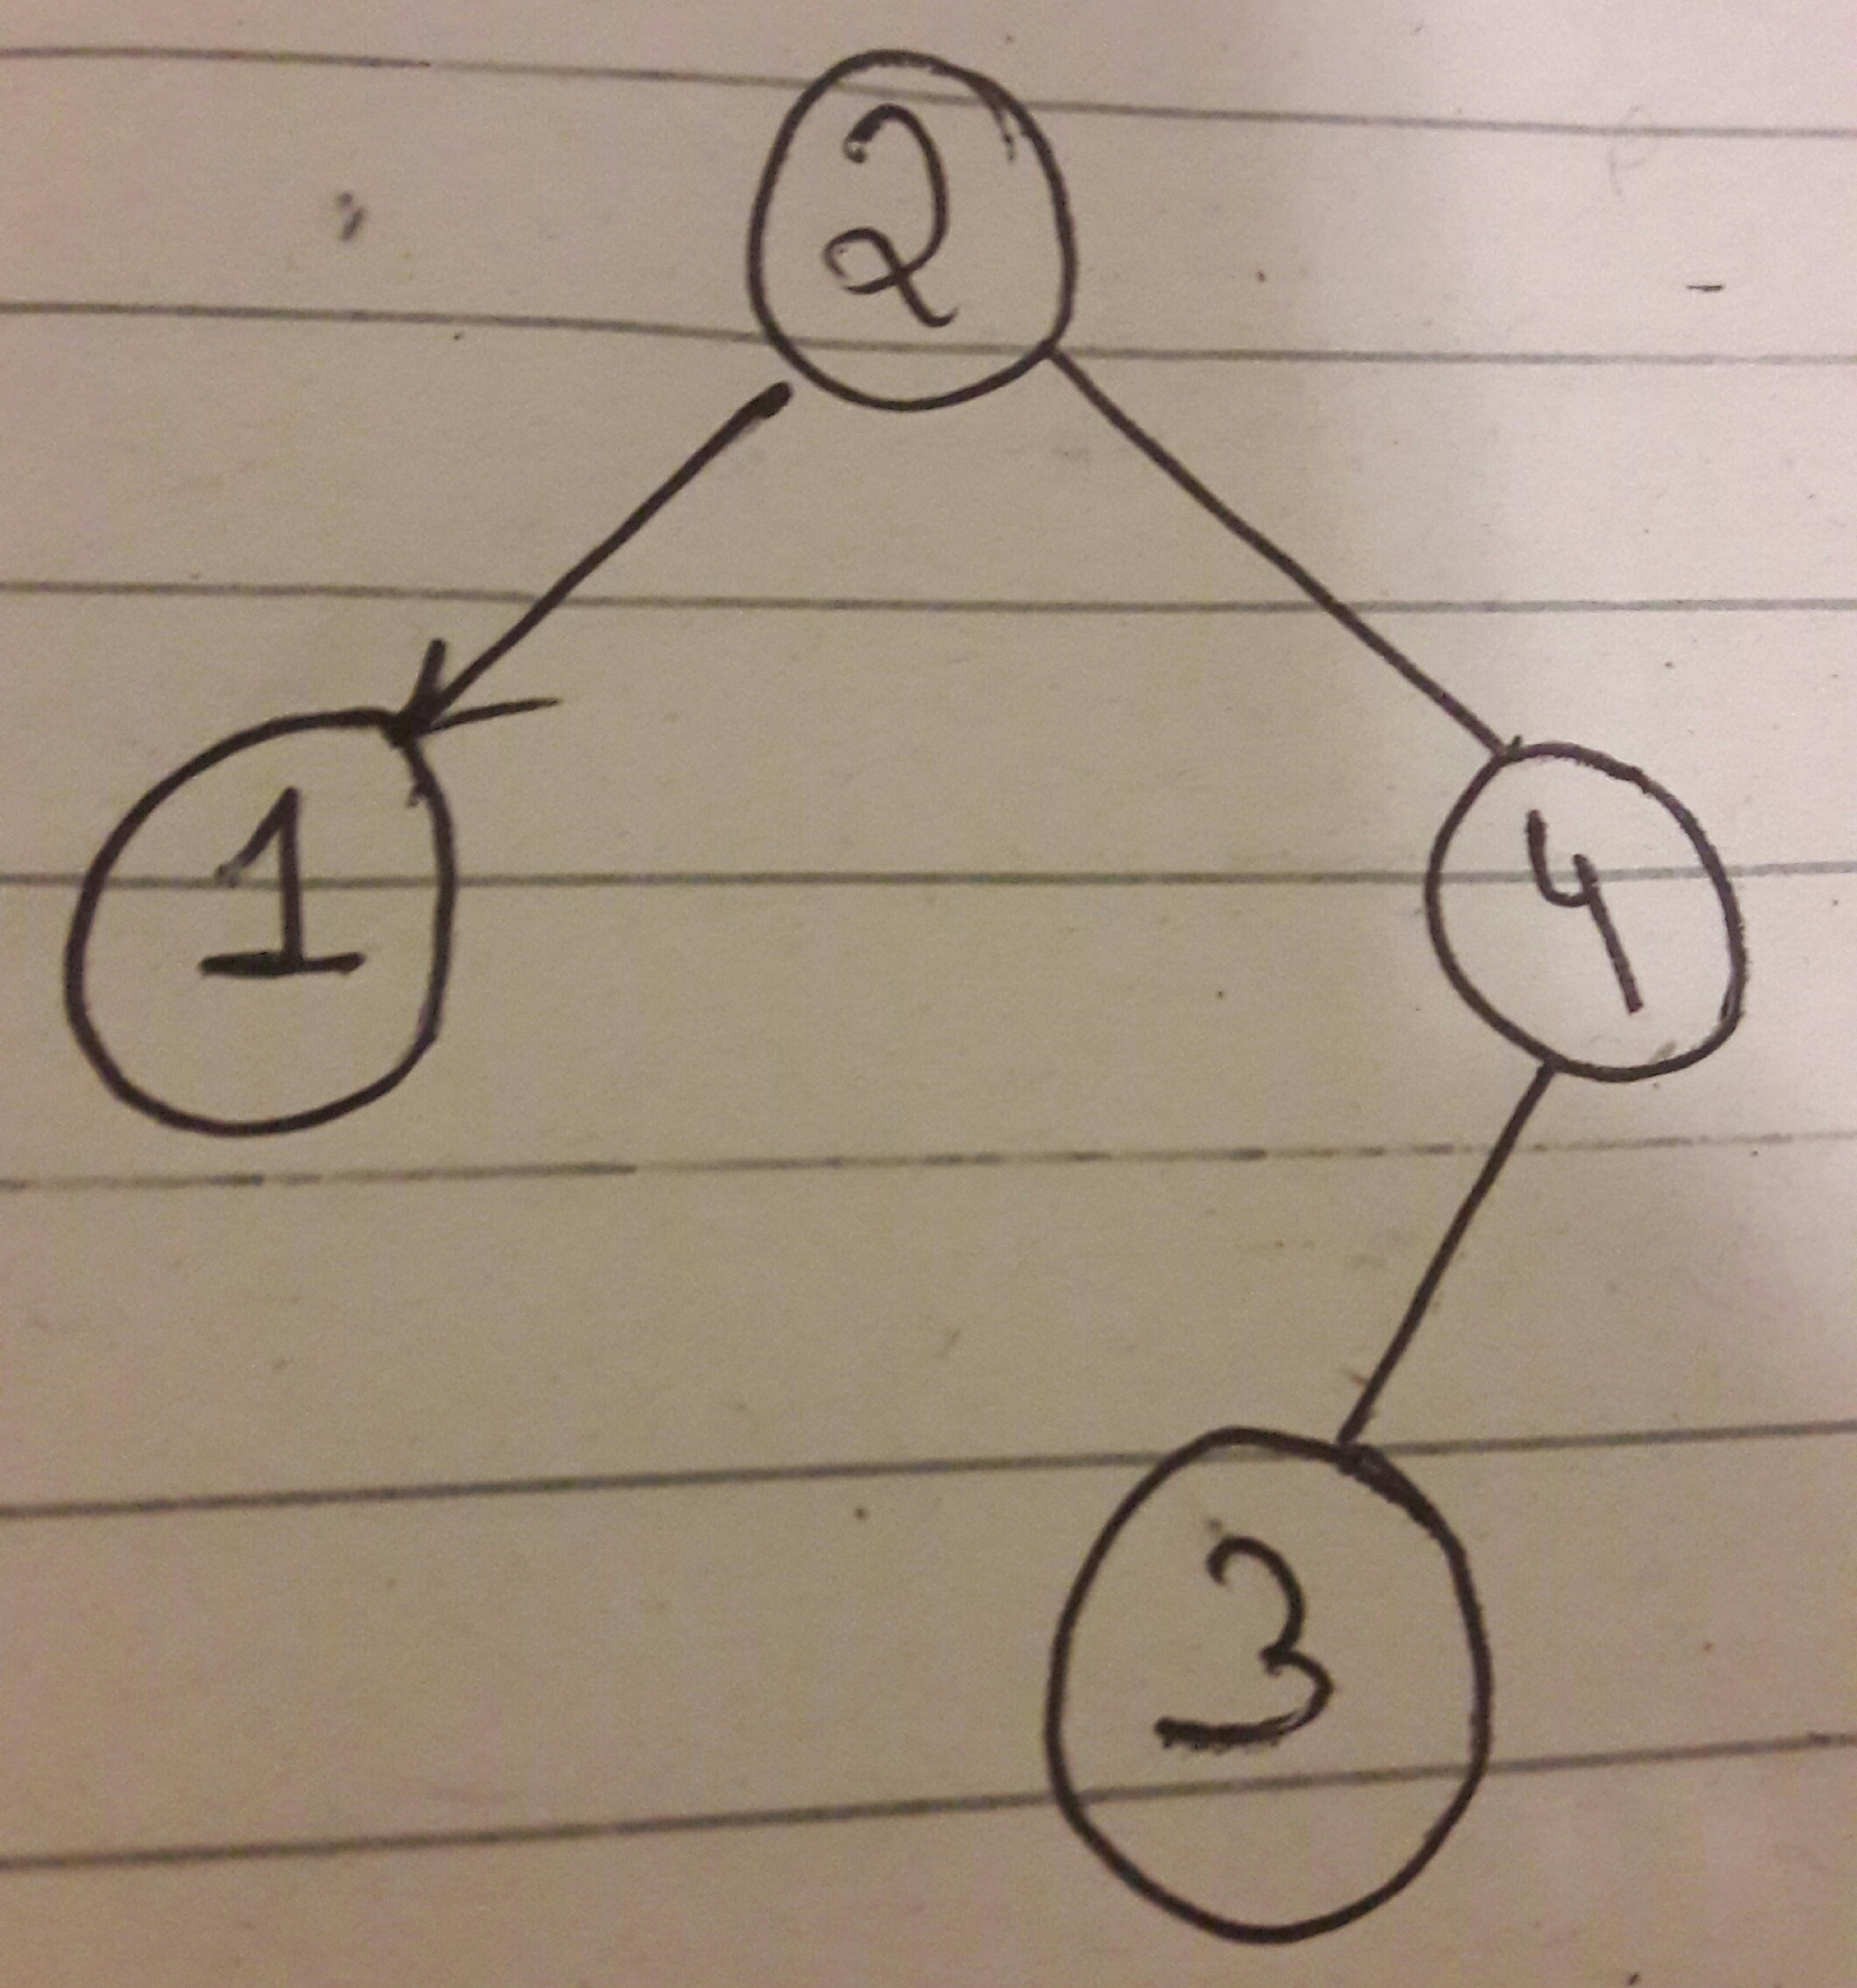 2
1
4
3